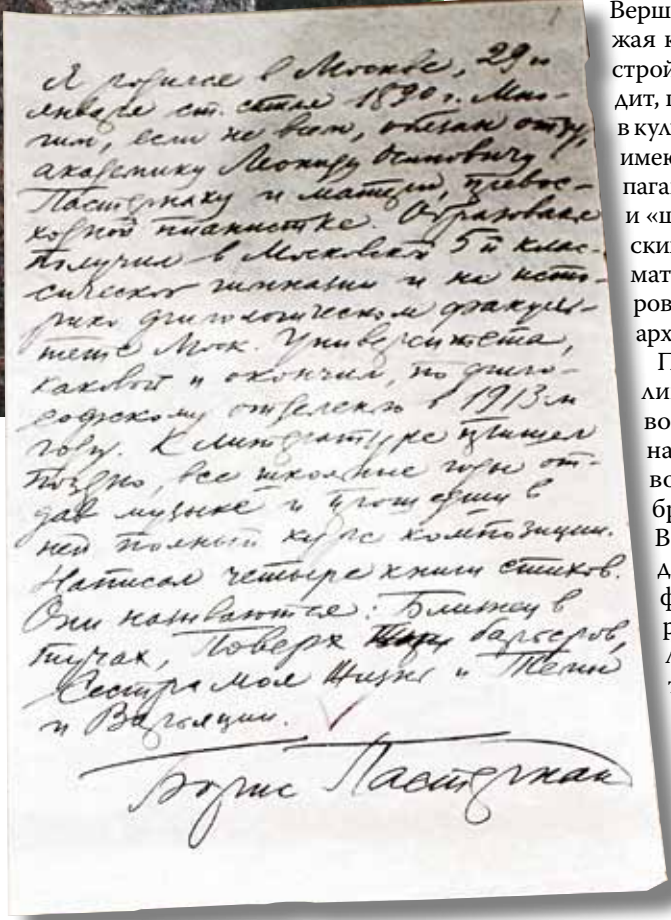 1
Я родился в Москве, 29 г
января ст. стиля 1890 г. Мно-
гим, если не всем, обязан отцу,
академику Леониду Осиповичу
Пастернаку и матери, превос-
ходной пианистке. Образование
получил в Московской 5й клас-
сической гимназии и на исто-
рико филологическом факуль-
тете Моск. Университета,
каковой и окончил, по фило-
софскому отделению в 1913 м
году. К литературе пришел
поздно, все школьные годы от-
дав музыке и прошедши в
ней полный курс композиции.
Написал четыре книги стихов.
Они называются: Близнец в
тучах, Поверх барьеров,
Сестра моя Жизнь и Темы
и Варьяции.
Борис Пастернак
Верш
жая к
строй
дит, 
в кул
имею
пага
и «ш
ски
мат
ров
арх
П
ли
во
на
во
бр
В
д
ф
р